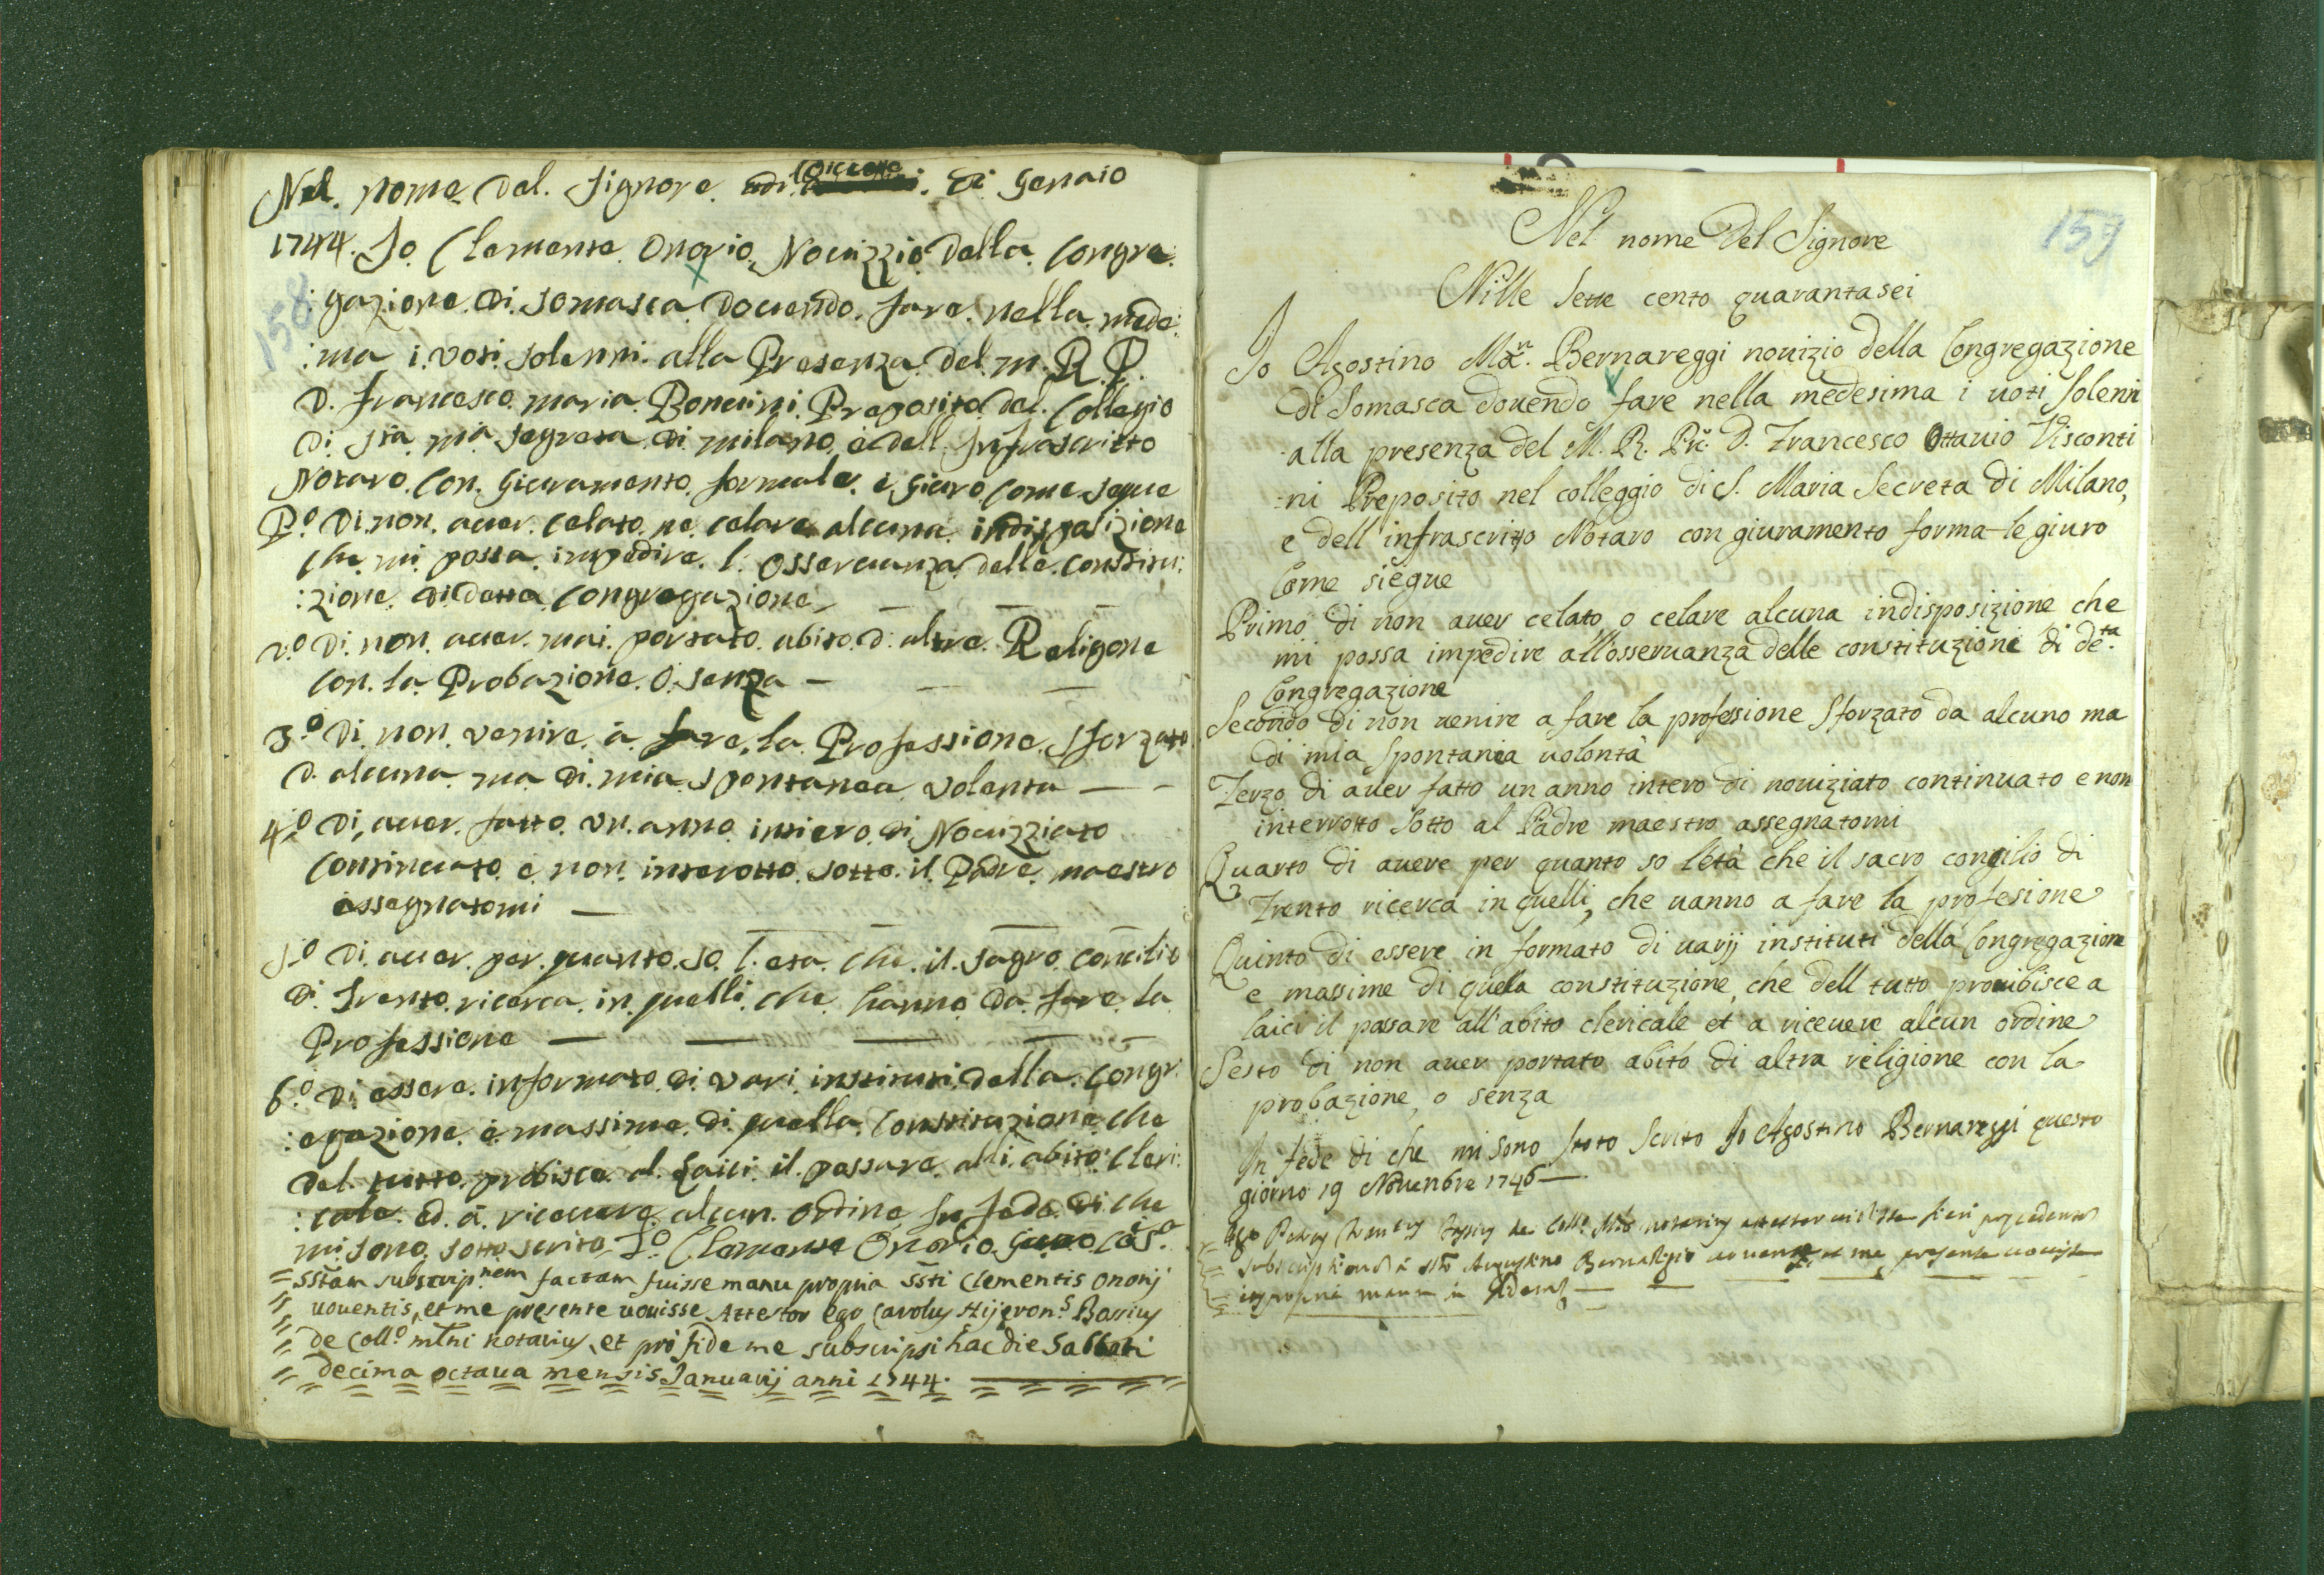 Nel. nome Del. Signore. adi. Di. Genaio
1744. Io Clemente. Onorio. Nouizzio Della. Congre:
:gazione. Di. Somasca Douendo. fare. nella. mede:
158
:ma i. voti. solenni. alla Presenza. Del. m. R. P.
D. Francesco. maria. Preposito. Del. Collegio
Di. Sta. ma. segreta. Di. milano. è dell. Infrascritto
Notaro. Con. Giuramento. formale. è. giuro. come. segue
P.º Di. non. auer. celato. ne. celare. alcuna. indisposizione
che. mi. possa. impedire. l. osseruanza. delle. constitu:
:zione. Di detta. congregazione. — — —
2.º Di. non. auer. mai. portato. abito. d. altre. Religone
con. la. Probazione. o. senza — — —
3.º Di. non. venire. à. fare. la. Professione. sforzato
d. alcuna. ma. Di. mia. spontanea. volonta — -
4.º Di. auer. fatto. vn. anno. intiero. di. Nouizziato
continuato. è non. interotto. sotto. il. Padre. maestro
assegnatomi —
5.º Di. auer. per. quanto. so. l. eta. che. il. sagro. concilio
Di. Trento. ricerca. in. quelli. che. hanno. Da. fare. la
Professione — — — — —
6.º Di essere. informato. di. vari. instituti. della. Congr:
:egazione. è. massime. di. quella. Constituzione. che
Del. tutto. probisce. al. Laici. il. passare. alli. abito. cleri:
:cale. ed. à. riceuere. alcun. ordine. In fede. di che
mi. sono. sotto scrito Io. Clemente Onorio Giuro Cosª
= sstam subscrip.nem factam fuisse manu propria ssti Clementis Onorij
uouentis, et me presente uouisse Attestor ego Carolus Hijeron.s
de Coll.º mlni notarius, et pro fide me subscripsi hac die Sabbati
decima octaua mensis Januarij anni 1744.
159
Nel nome Del Signore
Mille Sette cento quarantasei
Io Agostino Ma.n Bernareggi nouizio della Congregazione
di Somasca douendo fare nella medesima i uoti solenni
alla presenza del M. R. Pre. D. Francesco Ottauio Visconti
-ni Preposito nel colleggio di S. Maria Secreta di Milano,
e dell' infrascritto Notaro con giuramento forma-le giuro
Come siegue
Primo di non auer celato, o celare alcuna indisposizione che
mi possa impedire all'osseruanza delle constituzione di de.ta
Congregazione
Secondo di non uenire a fare la professione sforzato da alcuno ma
di mia spontania uolontà
Terzo di auer fatto un anno intero di nouiziato continuato e non
interrotto sotto al Padre maestro assegnatomi
Quarto di auere per quanto so l'età che il sacro concilio di
Trento ricerca in quelli, che uanno a fare la profesione
Quinto di essere in formato di uarij instituti della Congregazione
e massime di quella constituzione, che dell tutto prouibisce a
laici il passare all'abito clericale et a riceuere alcun ordine
Sesto di non auer portato abito di altra religione con la
probazione, o senza
In fede di che mi sono stoto scrito Io Agostino Bernareggi questo
giorno 19 Nouenbre 1746 —
Ego de Coll.º notarius attestor fieri precedentem
subscriptionem à Augustino uouente, et me presente uouisse
manu in fidem —